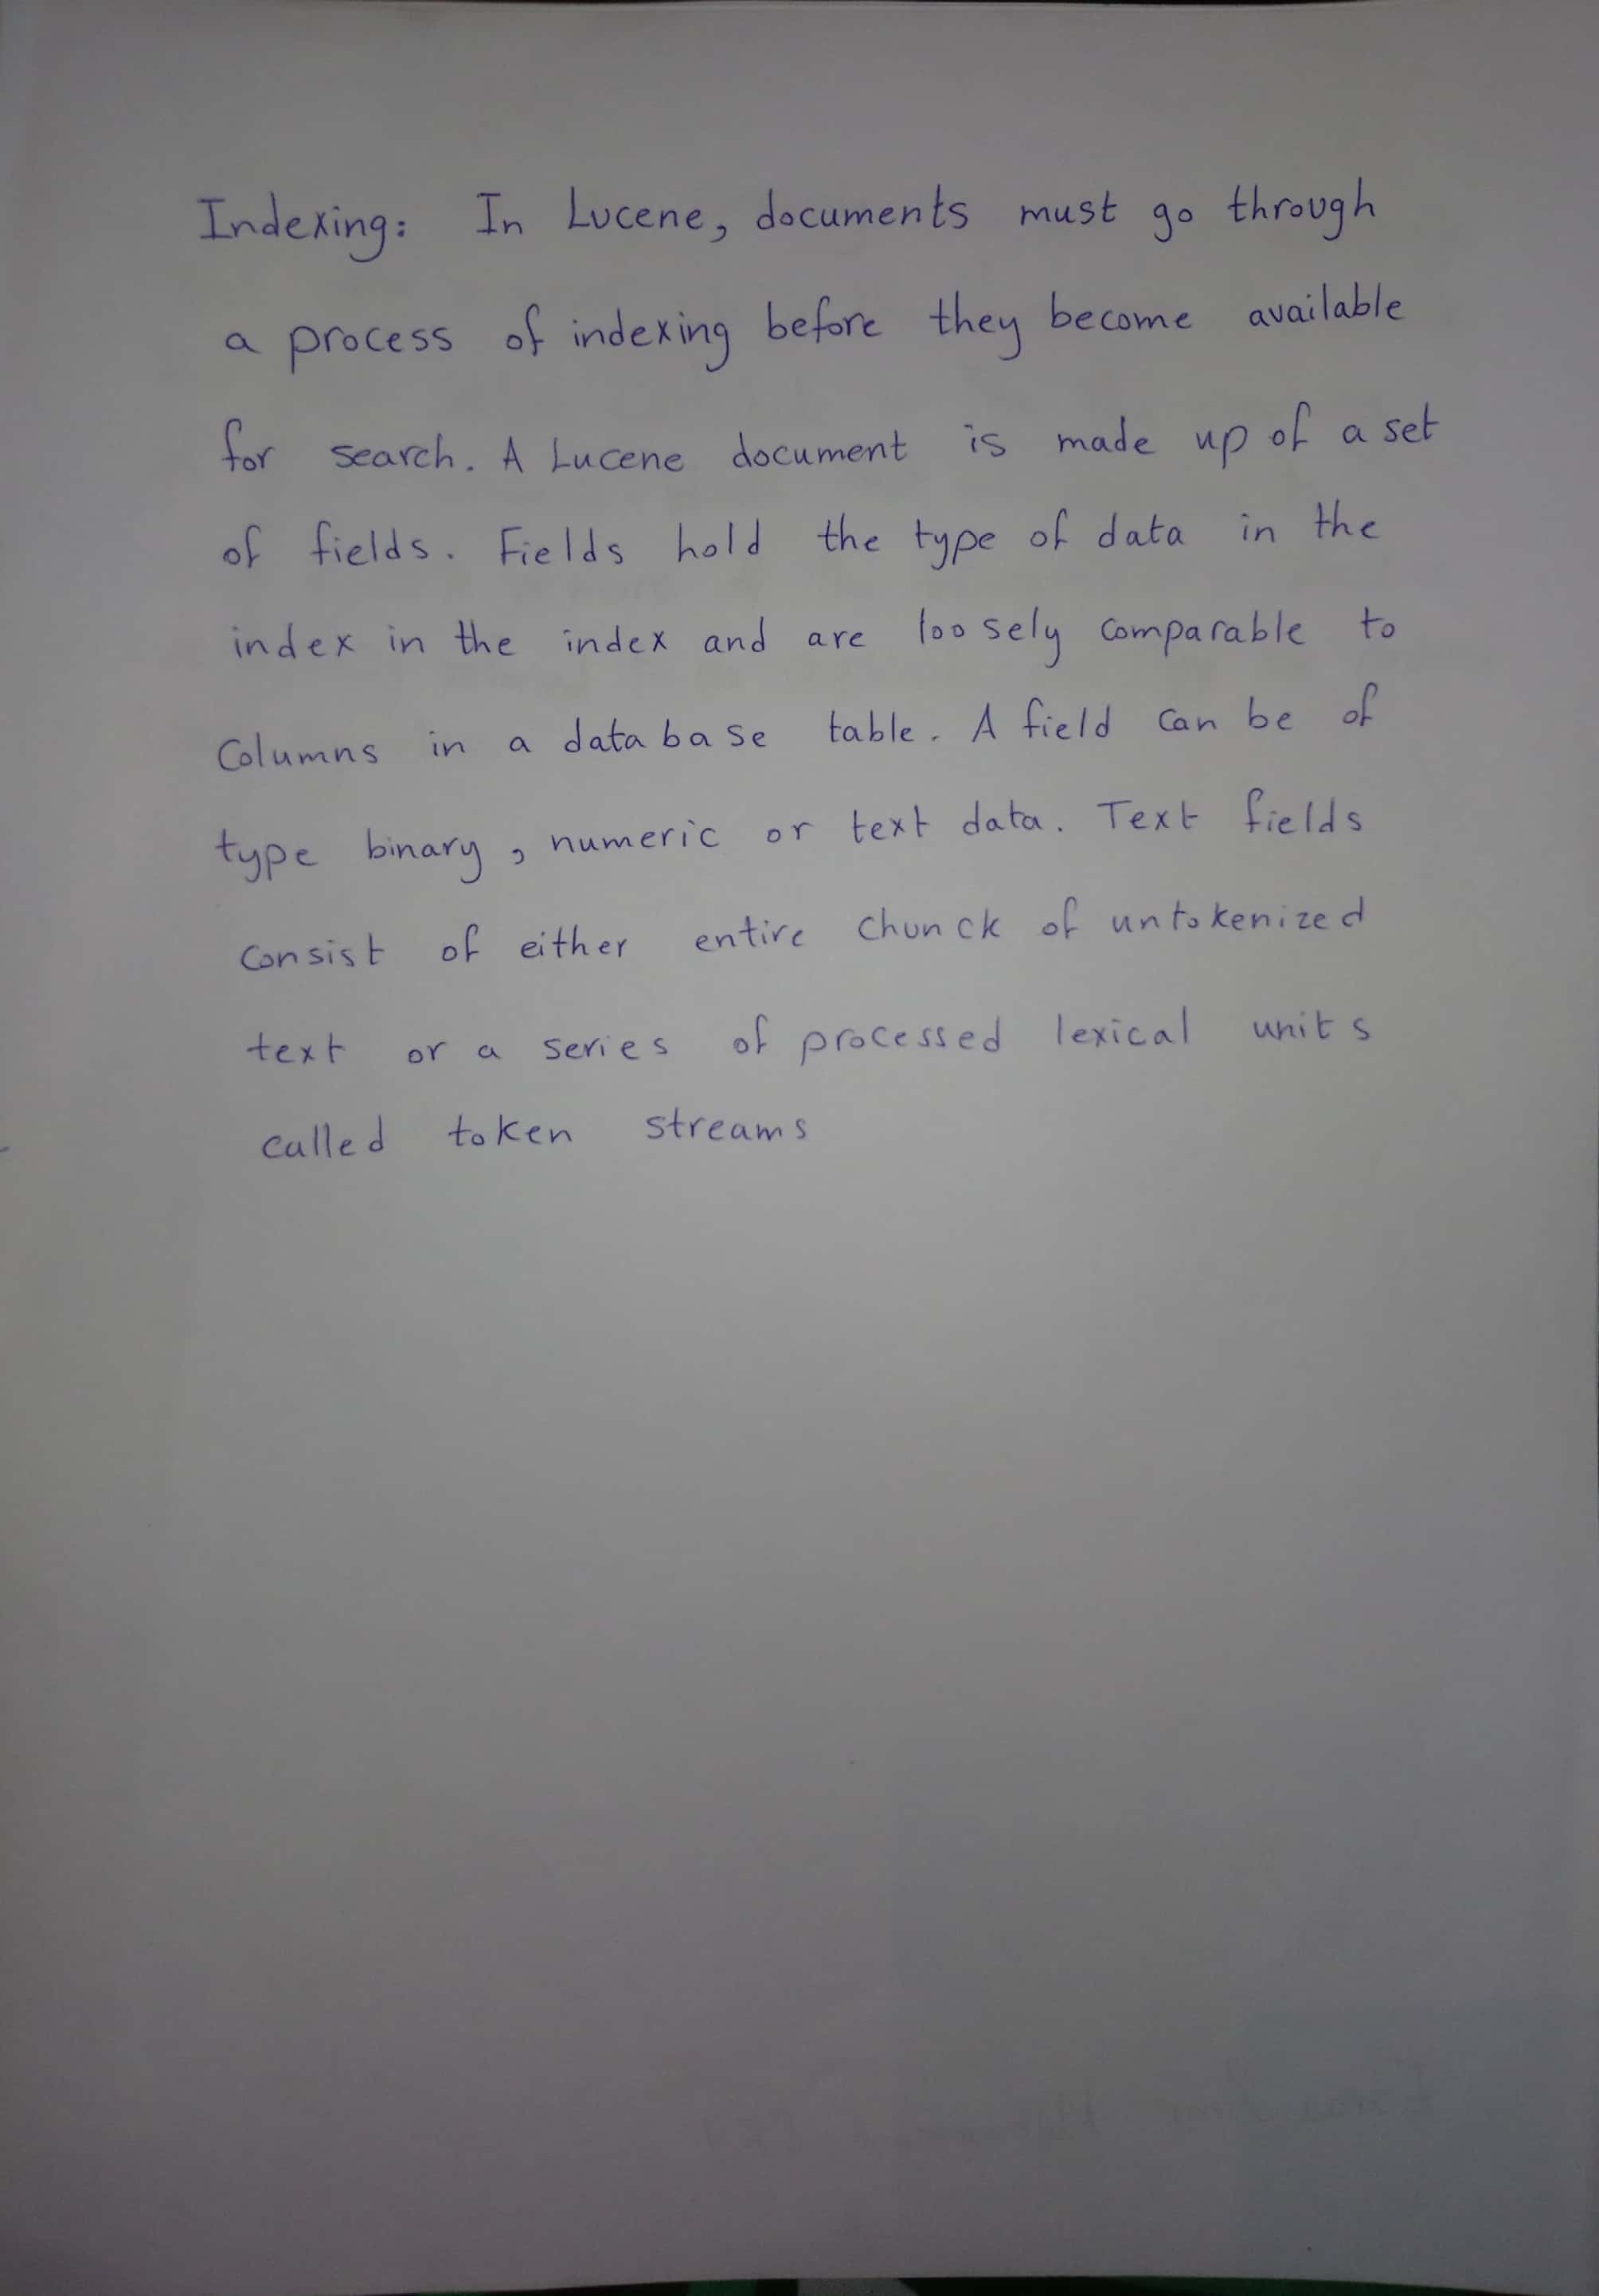 Indexing: In Lucene, documents must go through
a process of indexing before they become available
for search. A Lucene document is made up of a set
of fields. Fields hold the type of data in the
index in the index and are loosely comparable to
Columns in a database table. A field can be of
type binary, numeric or text data. Text fields
consist of either entire chunck of untokenized
text or a series of processed lexical units
called token streams